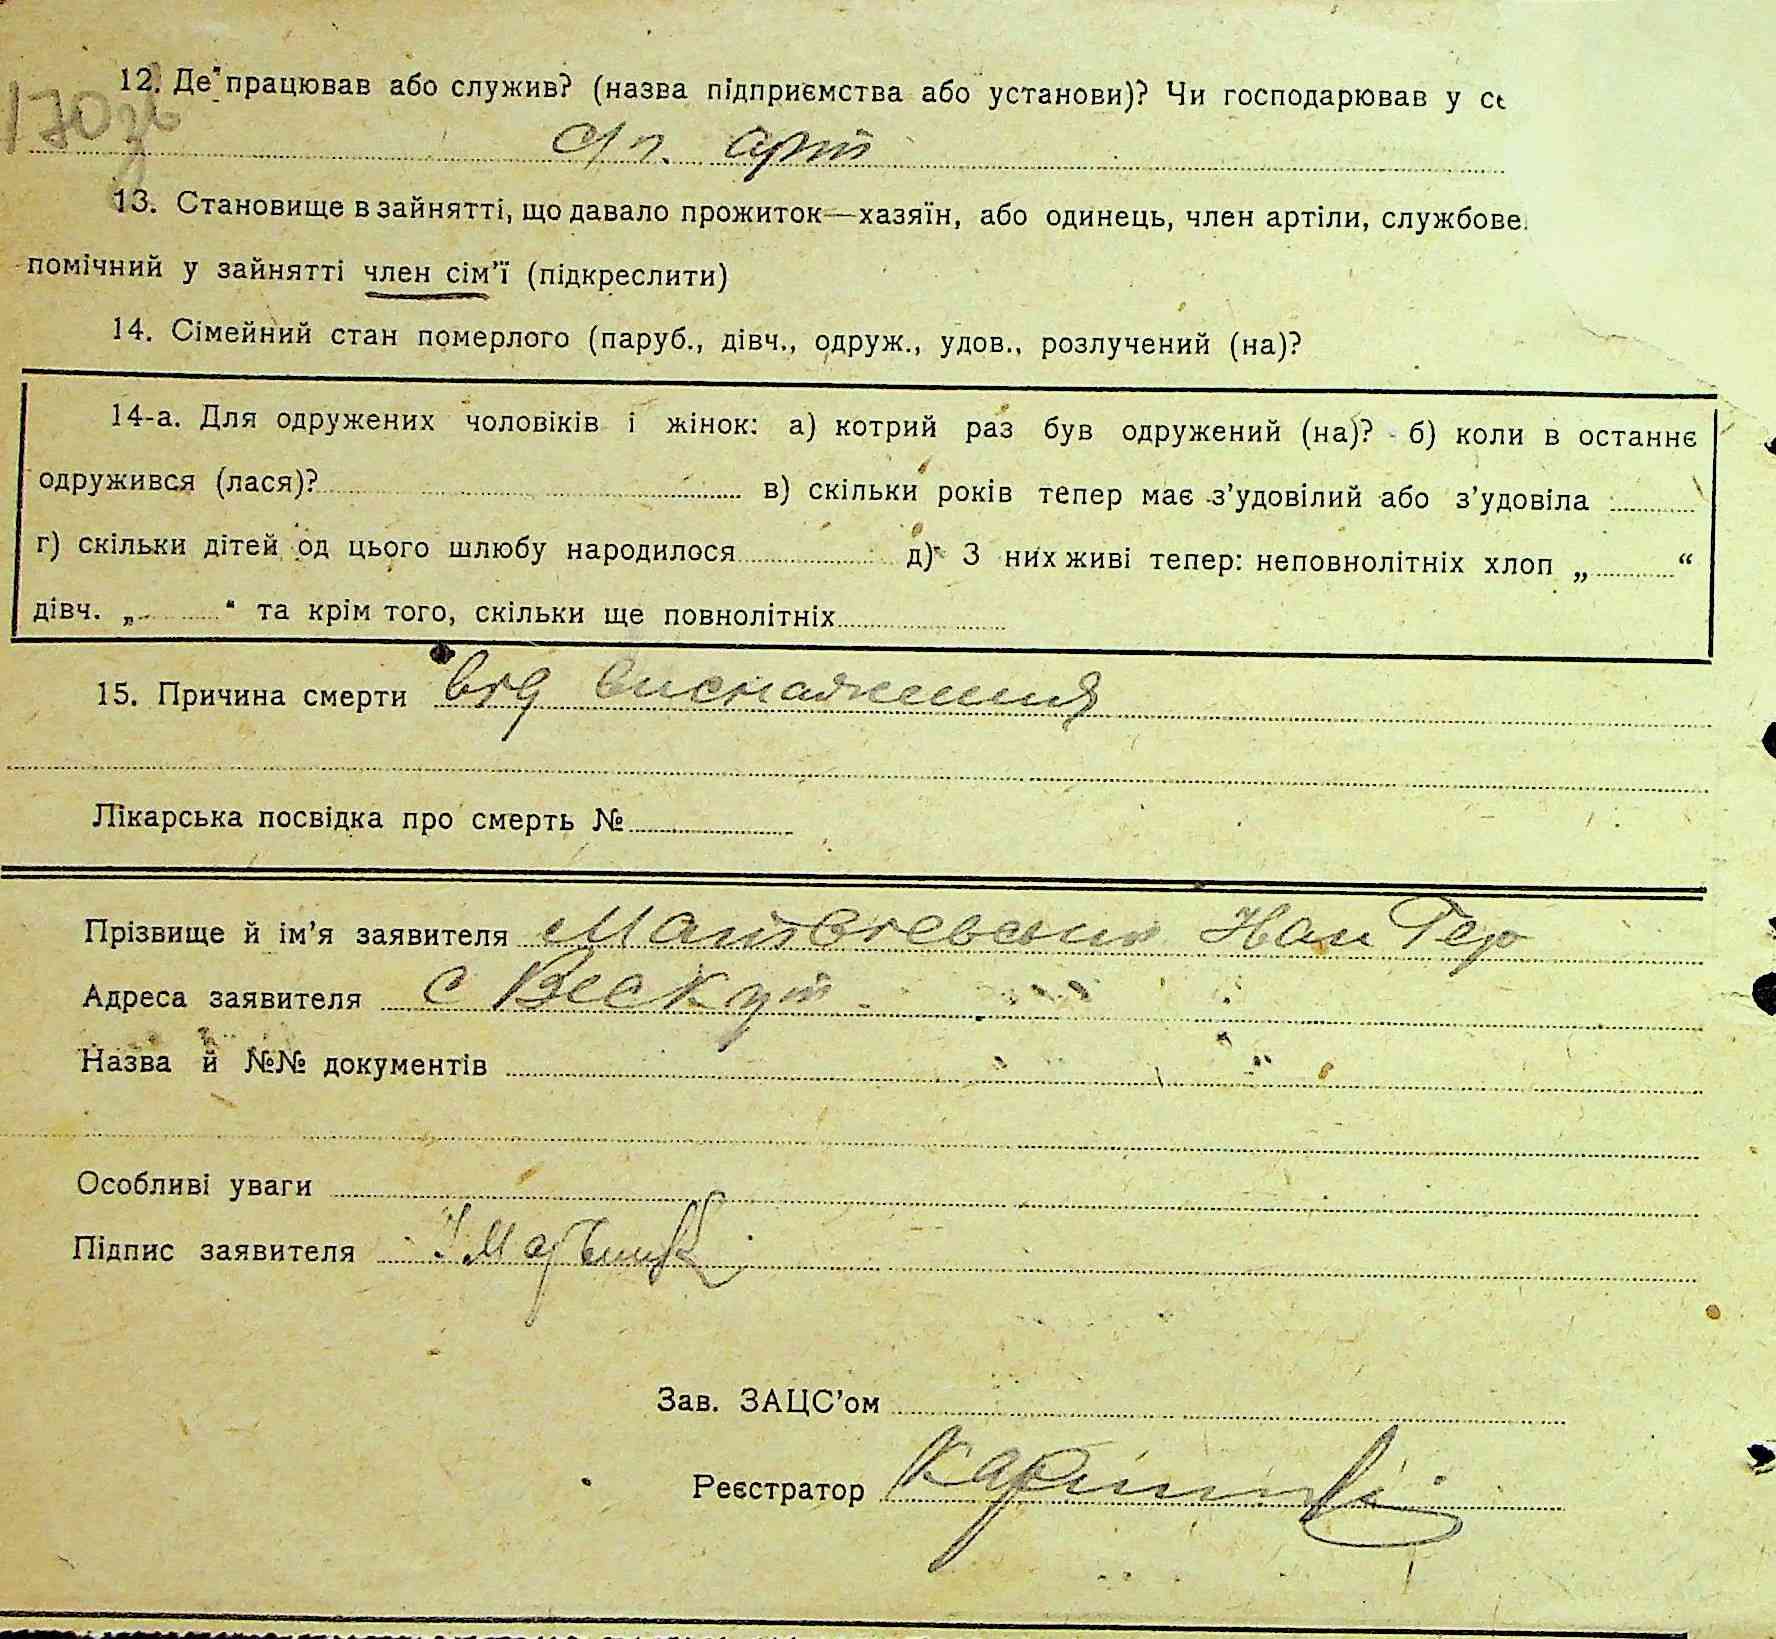 12. Де працював або служив? (назва підприємства або установи)? Чи господарював у се
170 зв
с/г. арт
13. Становище в зайнятті, що давало прожиток—хазяїн, або одинець, член артіли, службове
помічний у зайнятті член сім'ї (підкреслити)
14. Сімейний стан померлого (паруб., дівч., одруж., удов., розлучений (на)?
14-а. Для одружених чоловіків і жінок: а) котрий раз був одружений (на)? б) коли в останнє
одружився (лася)? в) скільки років тепер має з'удовілий або з'удовіла
г) скільки дітей од цього шлюбу народилося д) З них живі тепер: неповнолітніх хлоп „ “
дівч. „ “ та крім того, скільки ще повнолітніх
15. Причина смерти від виснаження
Лікарська посвідка про смерть №
Прізвище й ім'я заявителя
Адреса заявителя с
Назва й №№ документів
Особливі уваги
Підпис заявителя
Зав. ЗАЦС'ом
Реєстратор